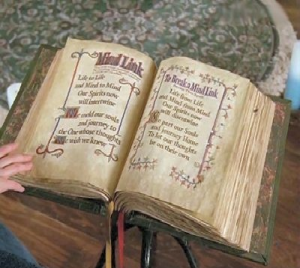 Mind Link
Life to Life
and Mind to Mind
Our Spirits now
will intertwine
We meld our souls
and journey to
the One whose thoughts
we wish we knew
To Break a Mind Link
Life from Life
and Mind from Mind
Our Spirits now
will intertwine
part our Soul
and journey home
To let our thoughts
be on their own